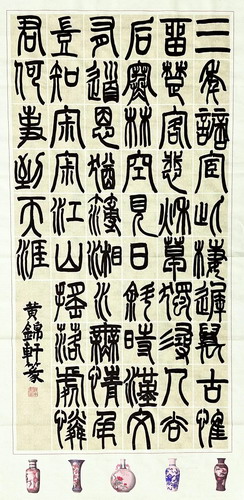 三年謫宦此棲遲萬古惟
留楚客悲秋草獨尋人去
后寒林空見日斜時漢文
有道恩猶薄湘水無情弔
豈知寂寂江山搖落處憐
君何事到天涯
黄錦軒篆